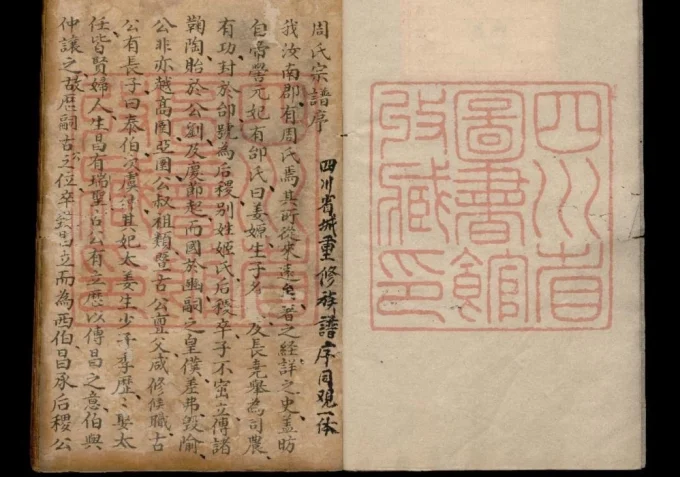 四川省
圖書館
收藏印
周氏宗譜序
四川省城重修族譜序同观一体
我汝南郡有周氏焉其所從來遠矣著之經詳之史盖昉
自帝嚳元妃有邰氏曰姜嫄生子名 及長堯舉為司農
有功封於邰號為后稷别姓姬氏后稷卒子不窋立傳諸
鞠陶貽於公劉及慶節起而國於豳嗣之皇僕差弗毀隃
公非亦越高圉亞圉公叔祖類暨古公亶父咸修侯職古
公有長子曰泰伯次虞仲其妃太姜生少子季歷娶太
任皆賢婦人生昌有瑞聖古公有立歷以傳昌之意伯與
仲讓之故歷嗣古之位卒昌立而為西伯昌承后稷公